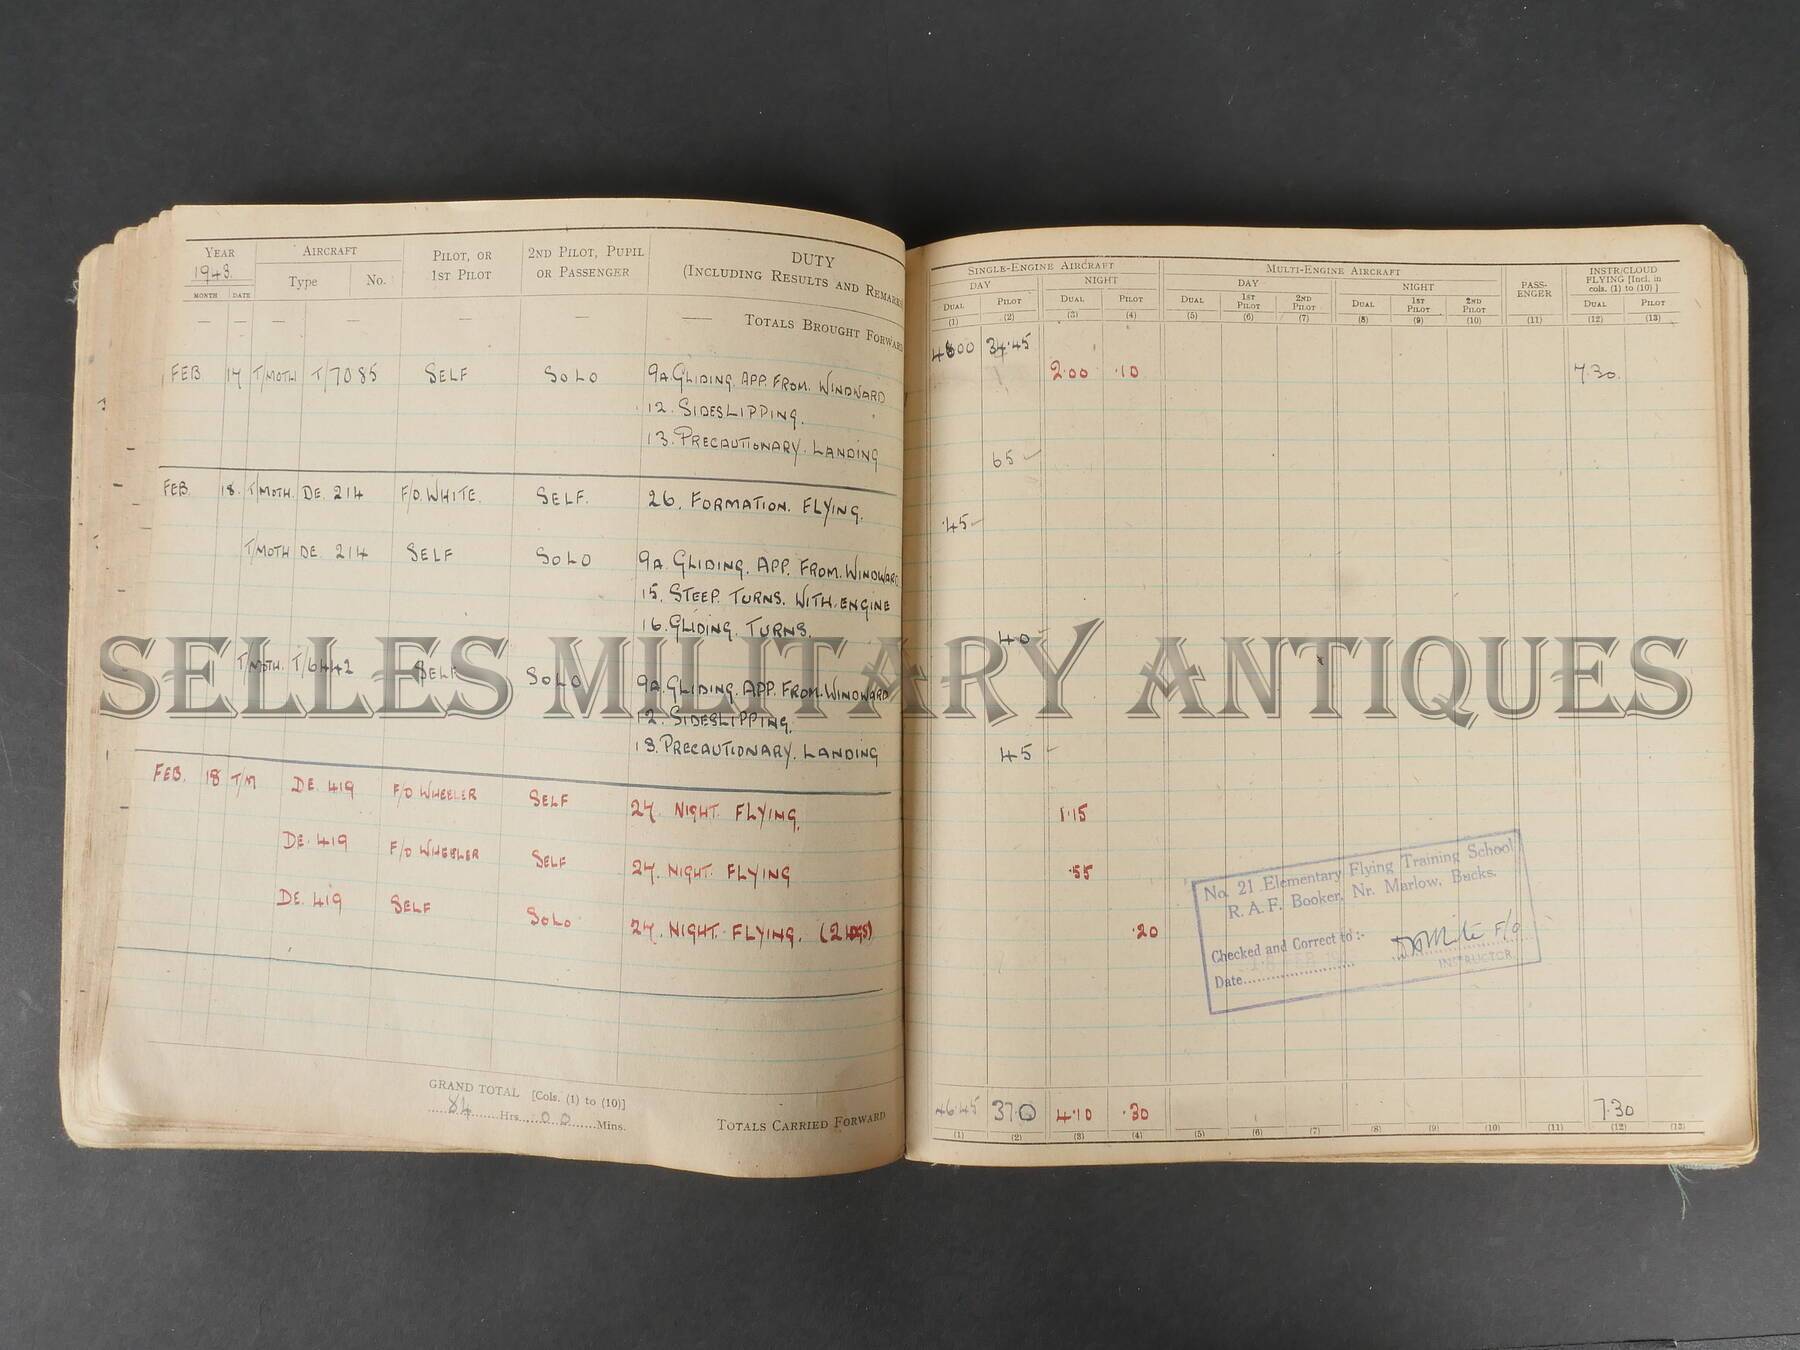 YEAR AIRCRAFT PILOT, OR 1ST PILOT 2ND PILOT, PUPIL OR PASSENGER DUTY (INCLUDING RESULTS AND REMARKS
1943. Type No.
MONTH DATE
— — — — — — — TOTALS BROUGHT FORWARD
FEB 17 T/MOTH T/7085 SELF SOLO 9A. GLIDING. APP. FROM. WINDWARD
12. SIDESLIPPING.
13. PRECAUTIONARY. LANDING
FEB. 18. T/MOTH. DE. 214 F/O. WHITE. SELF. 26. FORMATION. FLYING.
T/MOTH DE 214 SELF SOLO 9A. GLIDING. APP. FROM. WINDWARD
15. STEEP. TURNS. WITH. ENGINE
16. GLIDING. TURNS.
T/MOTH. T/6442 SELF SOLO 9A. GLIDING. APP. FROM. WINDWARD
12. SIDESLIPPING.
13. PRECAUTIONARY. LANDING
FEB. 18 T/M DE. 419 F/O WHEELER SELF 27. NIGHT. FLYING.
DE. 419 F/O WHEELER SELF 27. NIGHT. FLYING
DE. 419 SELF SOLO 27. NIGHT. FLYING.
GRAND TOTAL [Cols. (1) to (10)]
84 Hrs. 00 Mins.
TOTALS CARRIED FORWARD
SINGLE-ENGINE AIRCRAFT MULTI-ENGINE AIRCRAFT PASS-ENGER INSTR/CLOUD FLYING [Incl. in cols. (1) to (10)]
DAY NIGHT DAY NIGHT
DUAL PILOT DUAL PILOT DUAL 1ST PILOT 2ND PILOT DUAL 1ST PILOT 2ND PILOT DUAL PILOT
(1) (2) (3) (4) (5) (6) (7) (8) (9) (10) (11) (12) (13)
34.45
2.00 .10 7.30.
65
.45
40
45
1.15
.55
.20
No. 21 Elementary Flying Training School
R.A.F. Booker, Nr. Marlow, Bucks.
Checked and Correct to :- F/O
Date INSTRUCTOR
46.45 37.0 4.10 .30 7.30
(1) (2) (3) (4) (5) (6) (7) (8) (9) (10) (11) (12) (13)
SELLES MILITARY ANTIQUES